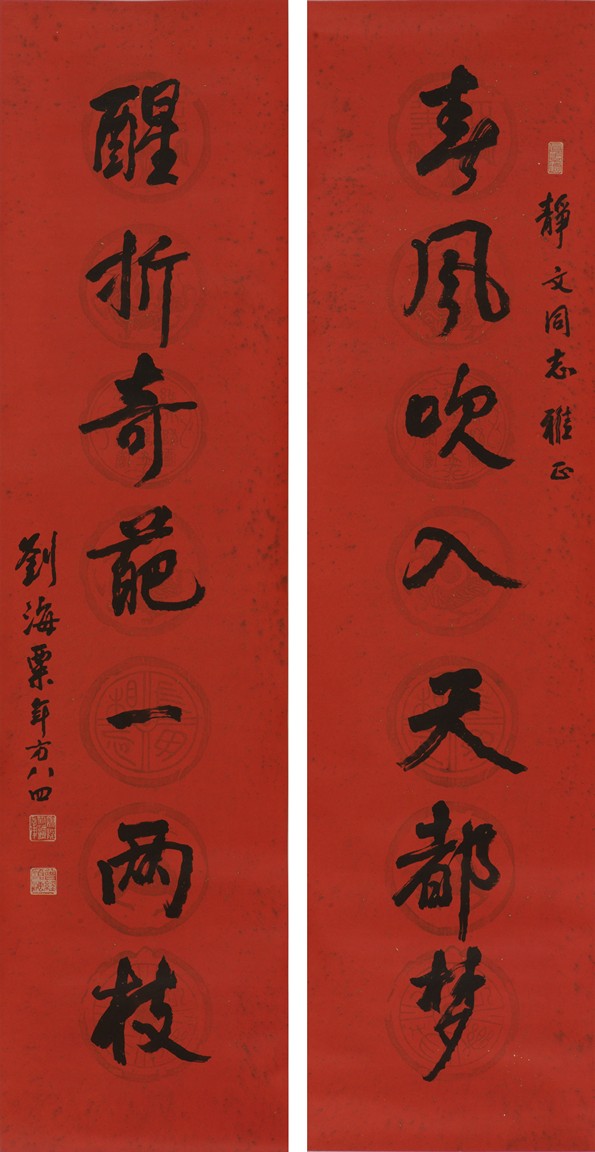 靜文同志雅正
春風吹入天都梦
醒折奇葩一两枝
劉海粟年方八四